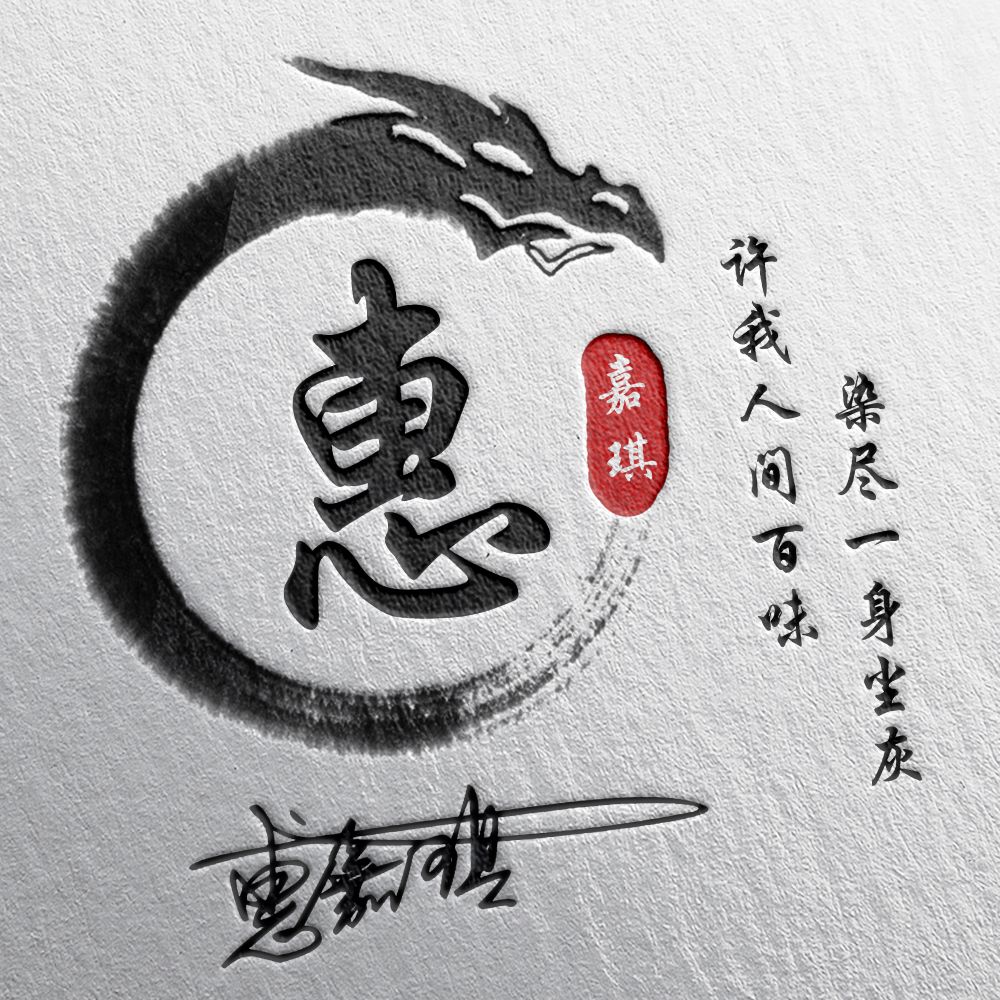 惠
嘉琪
许我人间百味
染尽一身尘灰
惠嘉琪